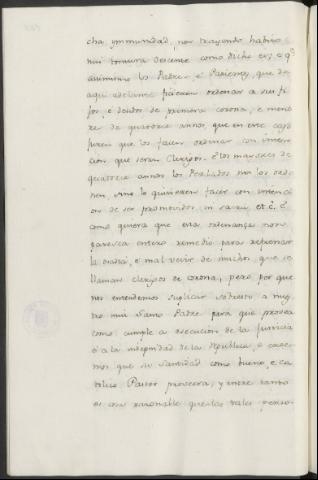 cha ymmunidad, non trayendo habito
nin tonsura decente como dicho es; e qe
asimismo los Padres, e Parientes, que de
aqui adelante ficieren ordenar a sus fi-
jos, e deudos de primera corona, e meno-
res de quatorce annos, que en este caso
juren que los facen ordenar con inten-
cion, que seran Clerigos. E los mayores de
quatorce annos los Perlados non los orde-
nen, sino lo quisieren facer con intenci-
on de ser promovidos in sacris et c.ª E
como quiera que esta ordenanza non
paresca entero remedio para refrenar
la osadia, e mal vevir de muchos, que se
llaman clerigos de corona, pero por que
nos entendemos suplicar sobresto a nues-
tro mui Santo Padre para que provea
como cumple a execucion de la justicia
e a la integridad de la Republica, e cree-
mos que su Santidad como bueno, e ca-
tolico Pastor proveera; y entre tanto
es cosa razonable que las tales perso-